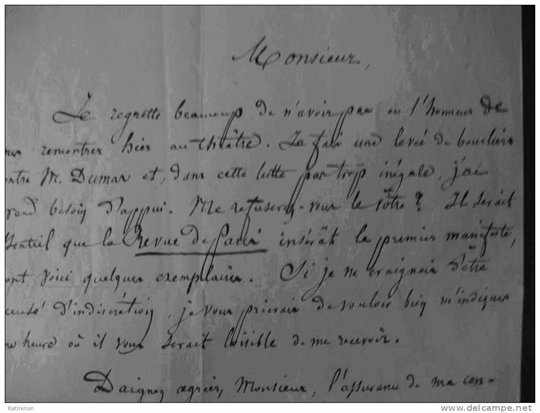 Monsieur,
Je regrette beaucoup de n'avoir pas eu l'honneur de
rencontrer hier au théâtre. Je fais une levée de boucliers
ontre M. Dumas et, dans cette lutte par trop inégale, j'ai
rand besoin d'appui. Me refuserez-vous le vôtre ? Il serait
gentil que la Revue de Paris insérât le premier manifeste,
ont voici quelques exemplaires. Si je ne craignais d'être
ccusé d'indiscrétion, je vous prierais de vouloir bien m'indiquer
ne heure où il vous serait loisible de me recevoir.
Daignez agréer, Monsieur, l'assurance de ma con-
Katininon
www.delcampe.net